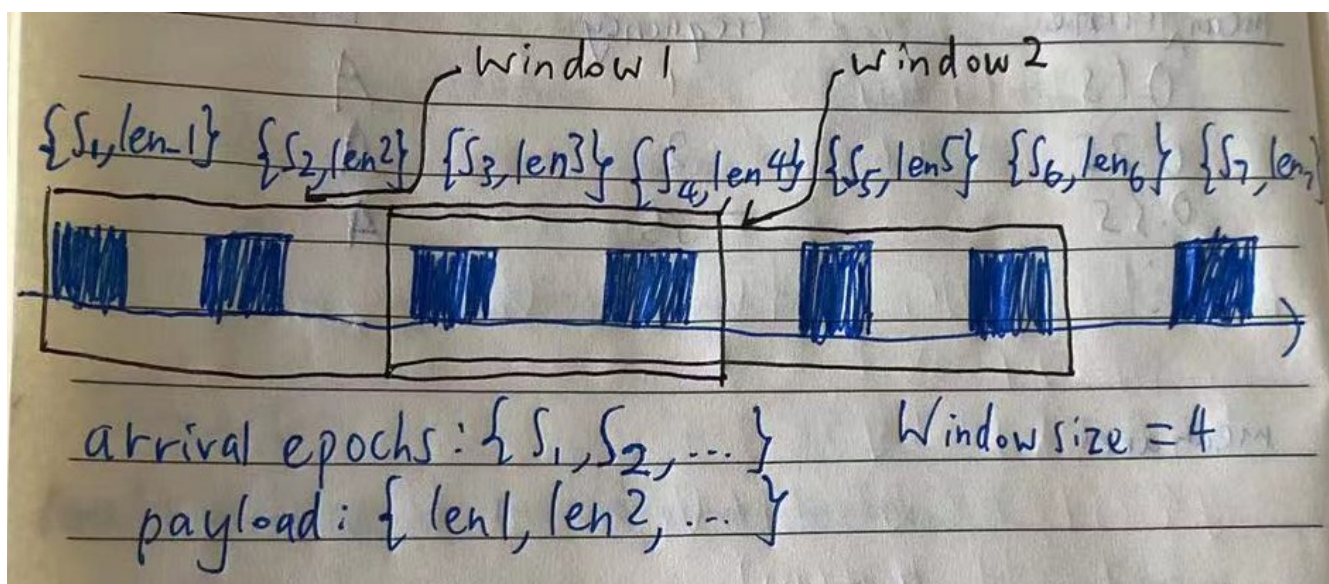 Window 1 Window 2
{S1, len_1} {S2, len2} {S3, len3} {S4, len4} {S5, len5} {S6, len6} {S7, len7}
arrival epochs: {S1, S2, ... } Window size = 4
payload: { len1, len2, ... }